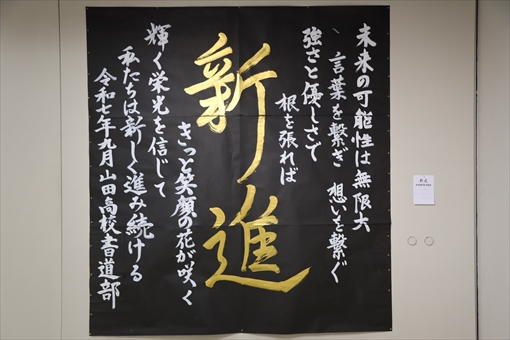 未来の可能性は無限大
言葉を繋ぎ 想いを繋ぐ
強さと優しさで
根を張れば
新進
きっと笑顔の花が咲く
輝く栄光を信じて
私たちは新しく進み続ける
令和七年九月 山田高校書道部
新進